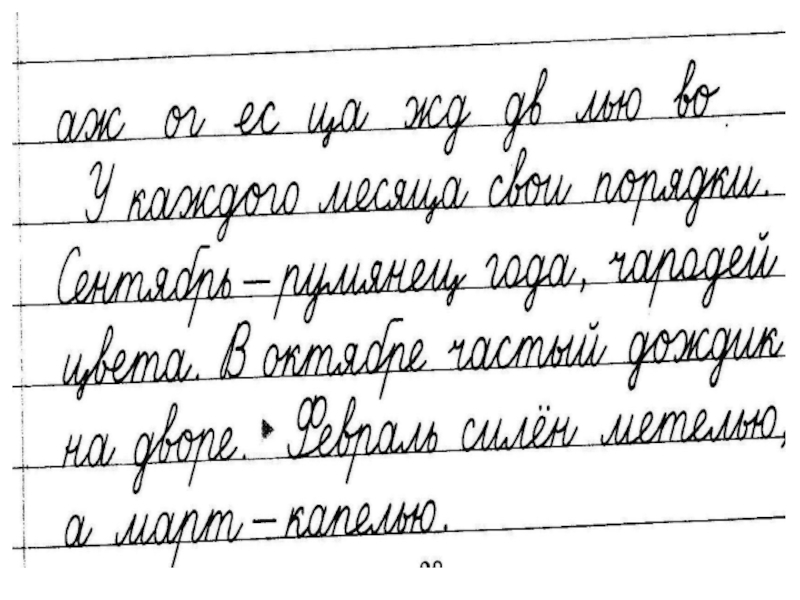 аж ог ес ца жд дв лью во
У каждого месяца свои порядки.
Сентябрь – румянец года, чародей
цвета. В октябре частый дождик
на дворе. Февраль силён метелью,
а март – капелью.